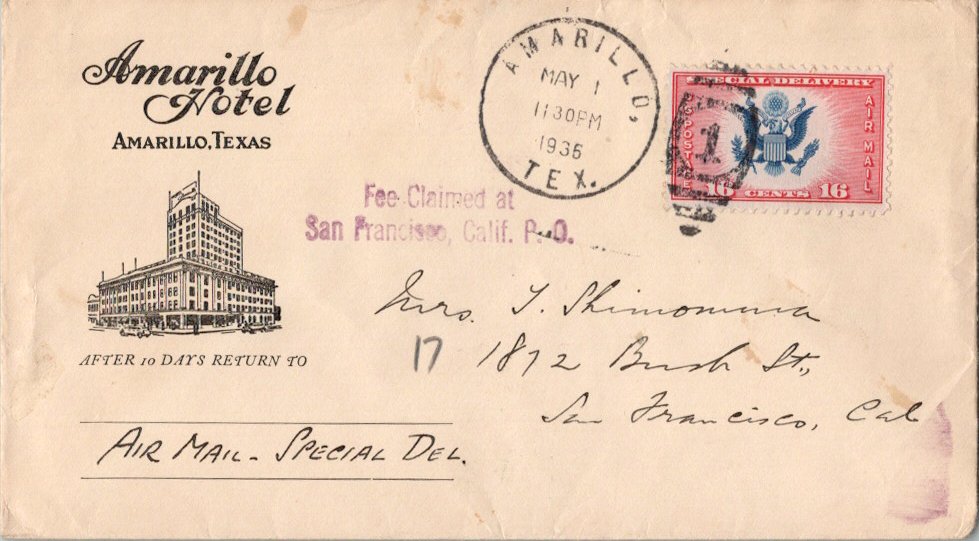 Amarillo
Hotel
AMARILLO, TEXAS
AFTER 10 DAYS RETURN TO
AIR MAIL - SPECIAL DEL.
AMARILLO,
MAY 1
1130PM
1936
TEX.
1
SPECIAL DELIVERY
US POSTAGE
AIR MAIL
16 CENTS 16
Fee Claimed at
San Francisco, Calif. P. O.
Mrs. T. Shimomura
17
1872 Bush St.,
San Francisco, Cal